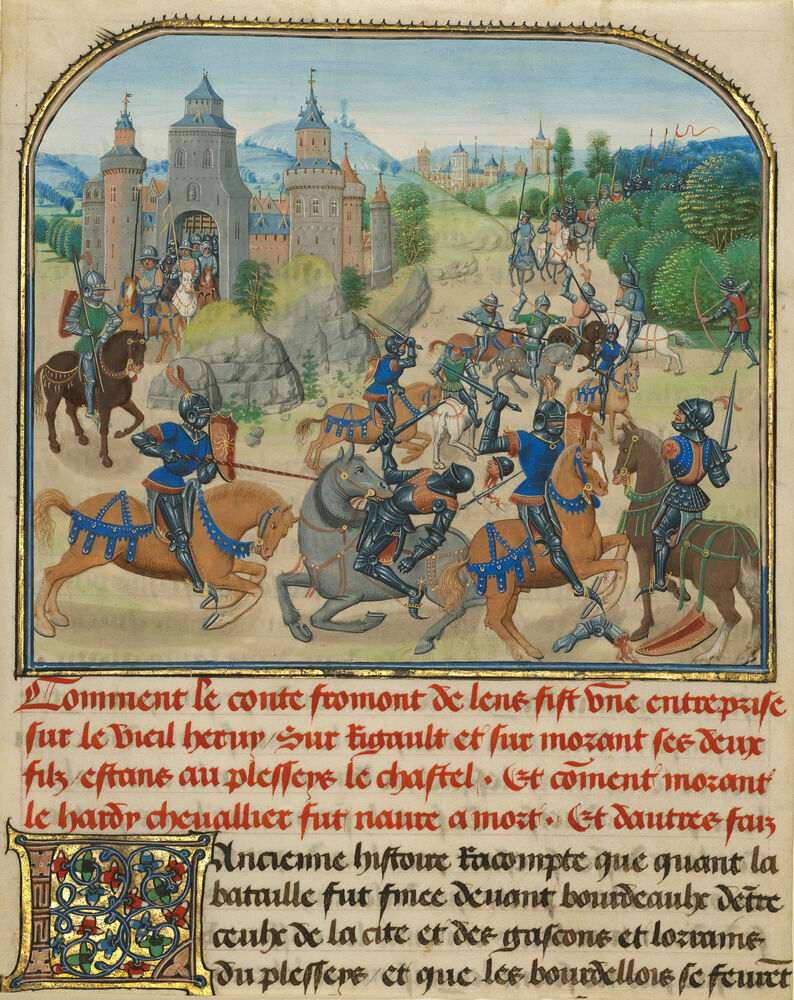 Comment le conte fromont de lens fist vne entreprise
sur le vieil heruy / Sur Rigault et sur morant ses deux
filz / estans au plesseys le chastel . Et cõment morant
le hardy cheuallier fut naure a mort . Et dautres faiz
L Ancienne histoire Racompte que quant la
bataille fut finee deuant bourdeaulx dẽtre
ceulx de la cite et des gascons et lorrains
du plesseys / et que les bourdellois se feurẽt